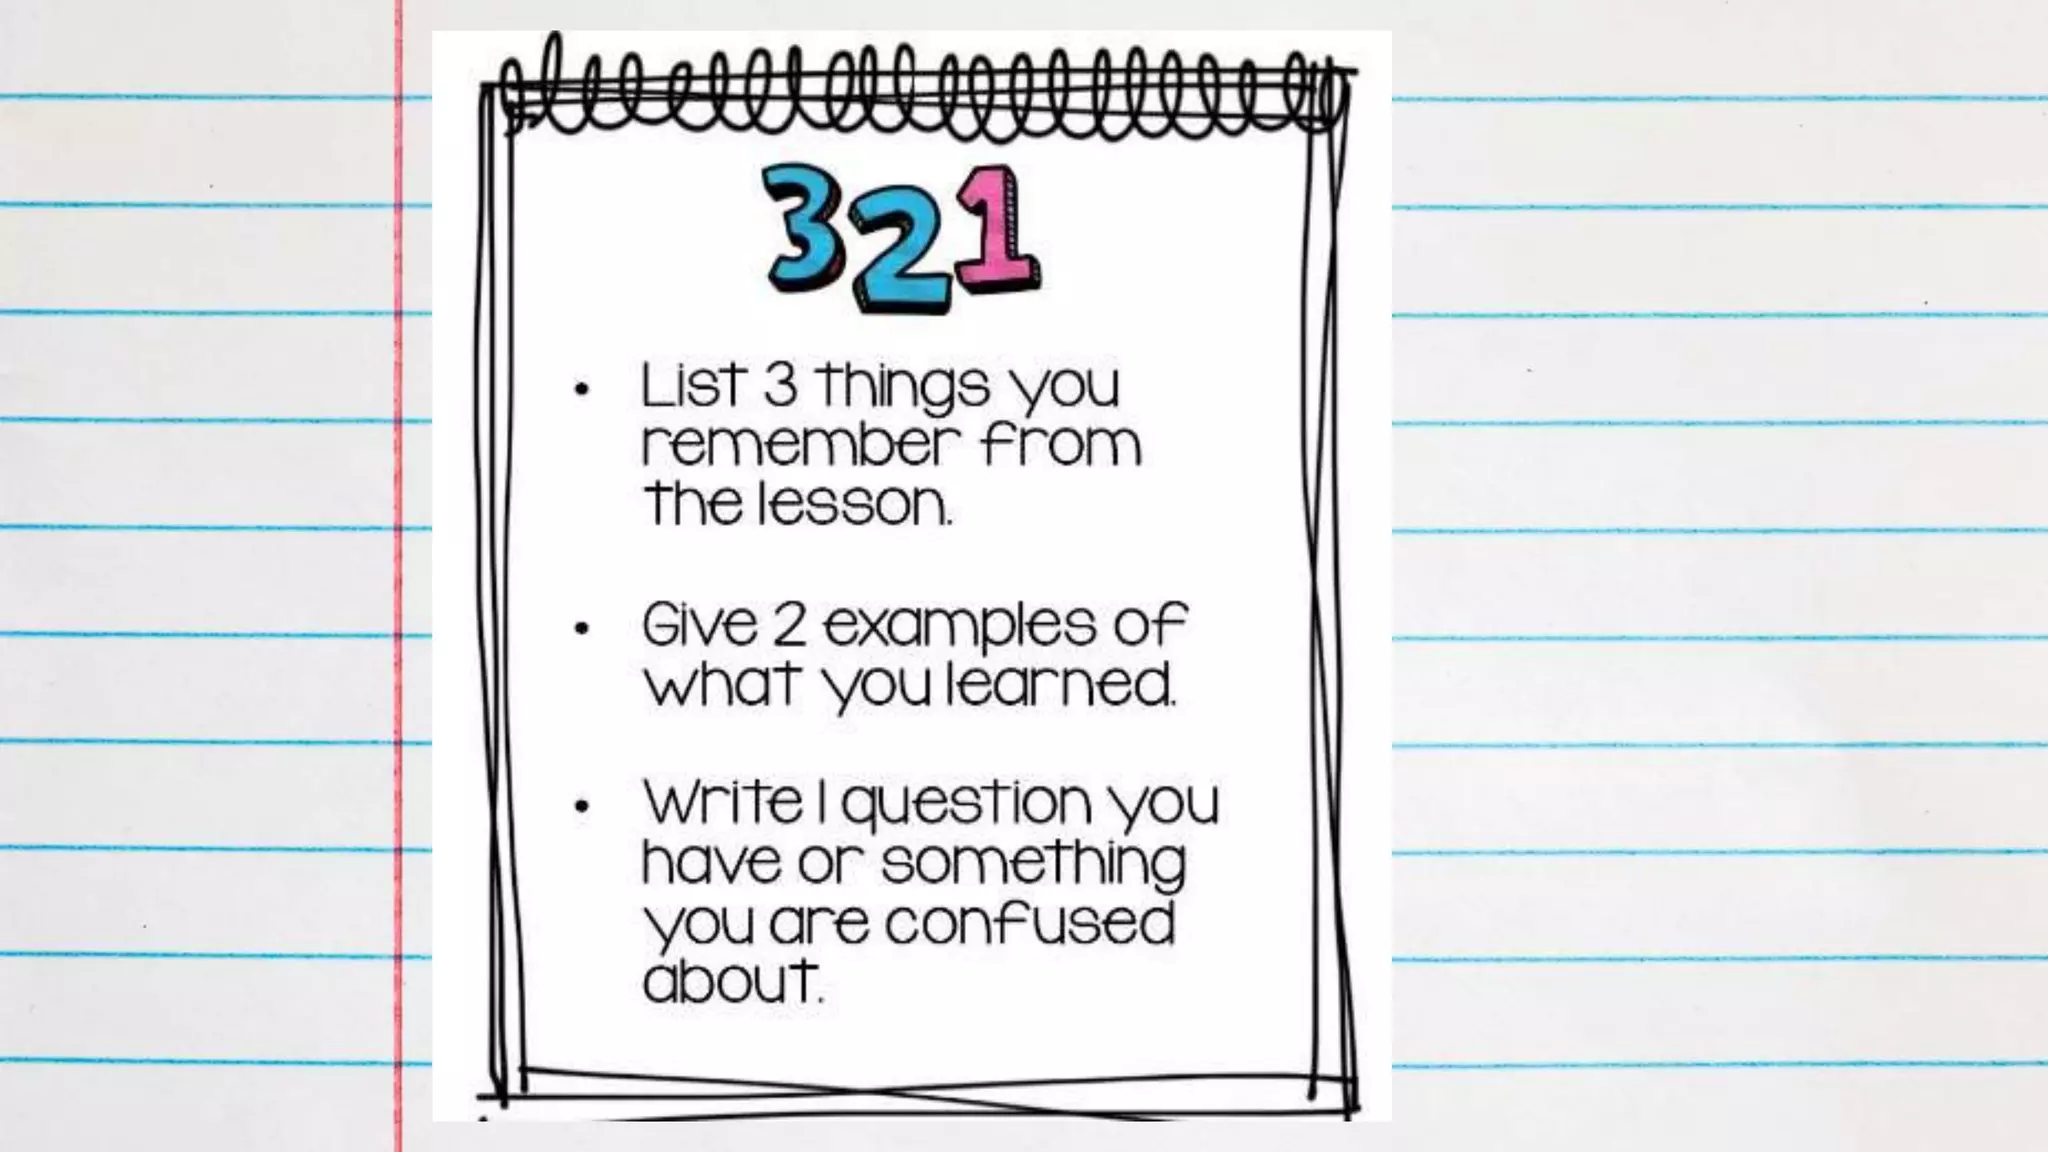 321
• List 3 things you
remember from
the lesson.
• Give 2 examples of
what you learned.
• Write 1 question you
have or something
you are confused
about.